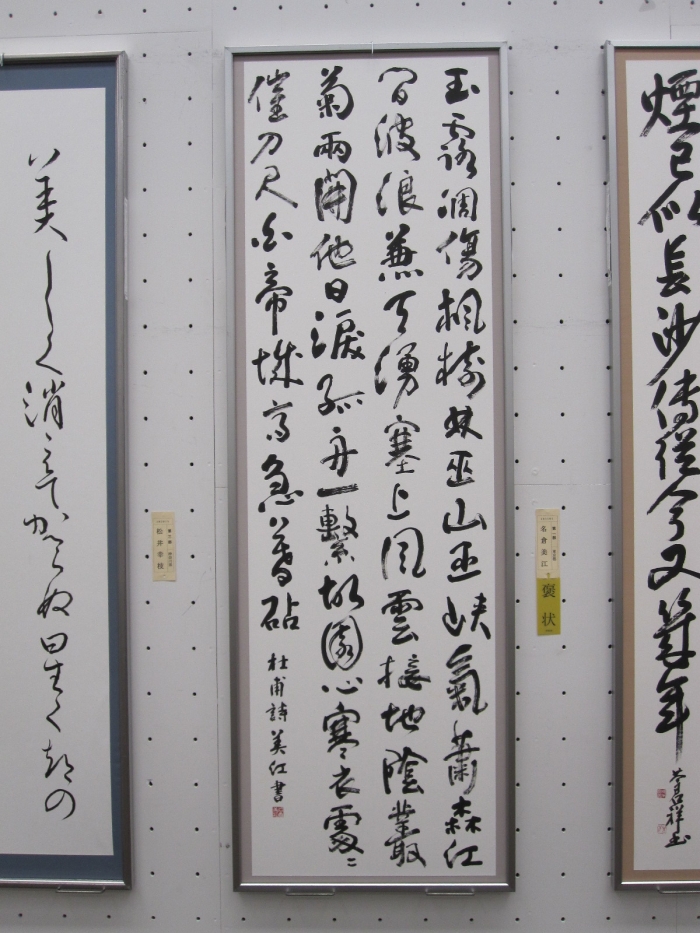 煙已似長沙傅從今又幾年
玉露凋傷楓樹林巫山巫峽氣蕭森江
間波浪兼天湧塞上風雲接地陰叢
菊兩開他日淚孤舟一繫故園心寒衣處〻
催刀尺白帝城高急暮砧
杜甫詩 美江書
名倉美江
褒状
松井幸枝
美しく消えて